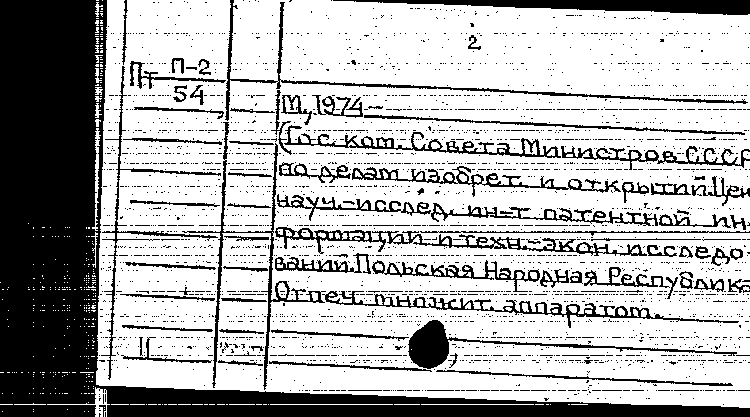 2
Пт П-2
54
М., 1974-
(Гос. ком. Совета Министров СССР
по делам изобрет. и открытий. Цен
науч.-исслед. ин-т патентной ин-
формации и техн.-экон. исследо-
ваний. Польская Народная Республика
Отпеч. множит. аппаратом.